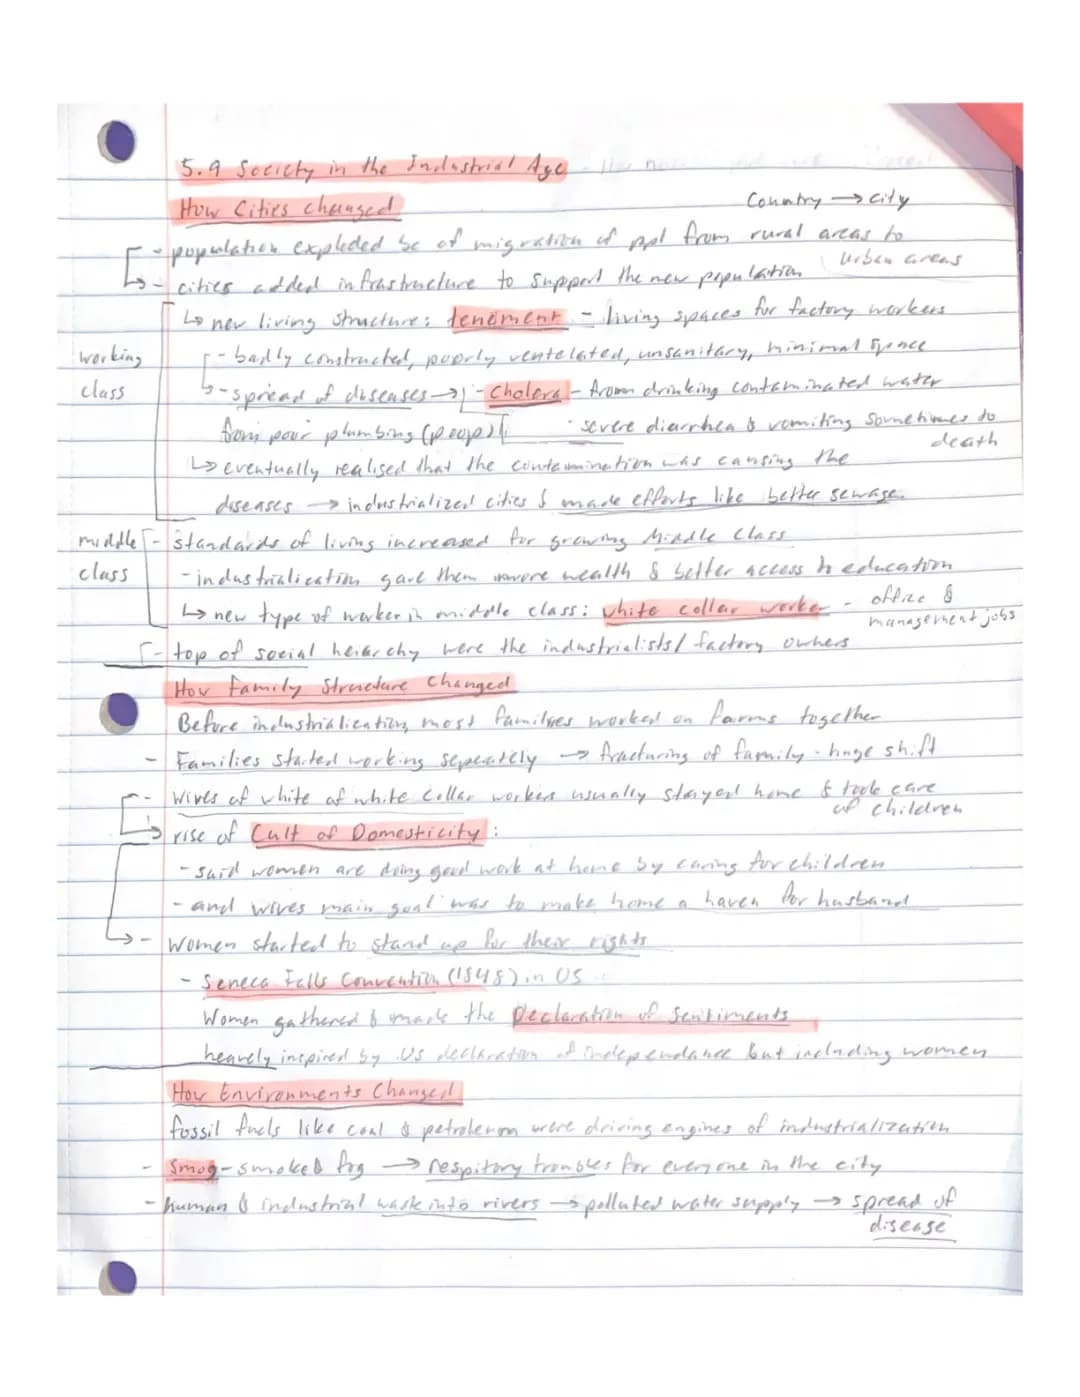 5.9 Society in the Industrial Age
How Cities changed
Country → city
- population exploded bc of migration of ppl from rural areas to
urban areas
- cities added infrastructure to support the new population
↳ new living structure: tenement - living spaces for factory workers
working
class
- badly constructed, poorly ventelated, unsanitary, minimal space
- spread of diseases → - Cholera - from drinking contaminated water
from poor plumbing (poop)
- severe diarrhea & vomiting sometimes to
death
↳ eventually realised that the contamination was causing the
diseases → industrialized cities & made efforts like better sewage
middle
class
- standards of living increased for growing Middle Class
- industrialication gave them more wealth & better access to education
↳ new type of worker in middle class: white collar worker - office &
management jobs
- top of social heiarchy were the industrialists/ factory owners
How Family Structure Changed
Before industrialication, most families worked on farms together
- Families started working seperately → fracturing of family - huge shift
- Wives of white of white collar workers usually stayed home & took care
of children
rise of Cult of Domesticity:
- said women are doing good work at home by caring for children
- and wives main goal was to make home a haven for husband
- Women started to stand up for their rights
- Seneca Falls Convention (1848) in US
Women gathered & made the Declaration of Sentiments
heavely inspired by US declaration of independance but including women
How Environments Changed
fossil fuels like coal & petroleum were driving engines of industrialization
- Smog - smoke & fog → respitory troubles for everyone in the city
- human & industrial waste into rivers → polluted water supply → spread of
disease